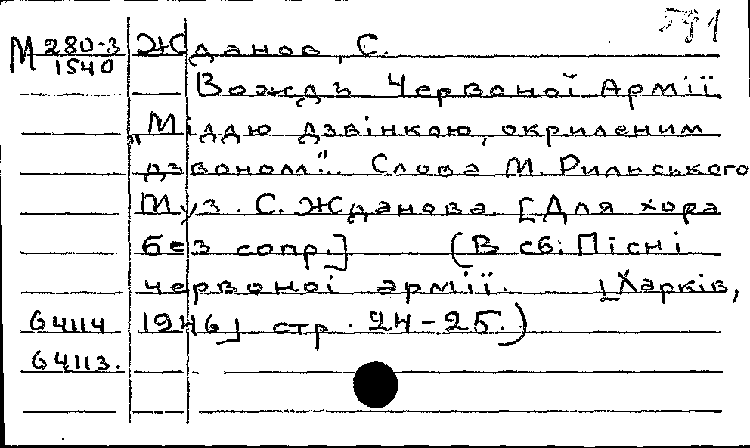 591
М 280-3 Жданов, С.
1540
Вождь Червоної Армії
„Міддю дзвінкою, окриленим
дзвоном“. Слова М. Рильського
Муз. С. Жданова. [Для хора
без сопр.] (В сб: Пісні
червоної армії. [Харків,
64114 1946] стр. 24-25.)
64113.